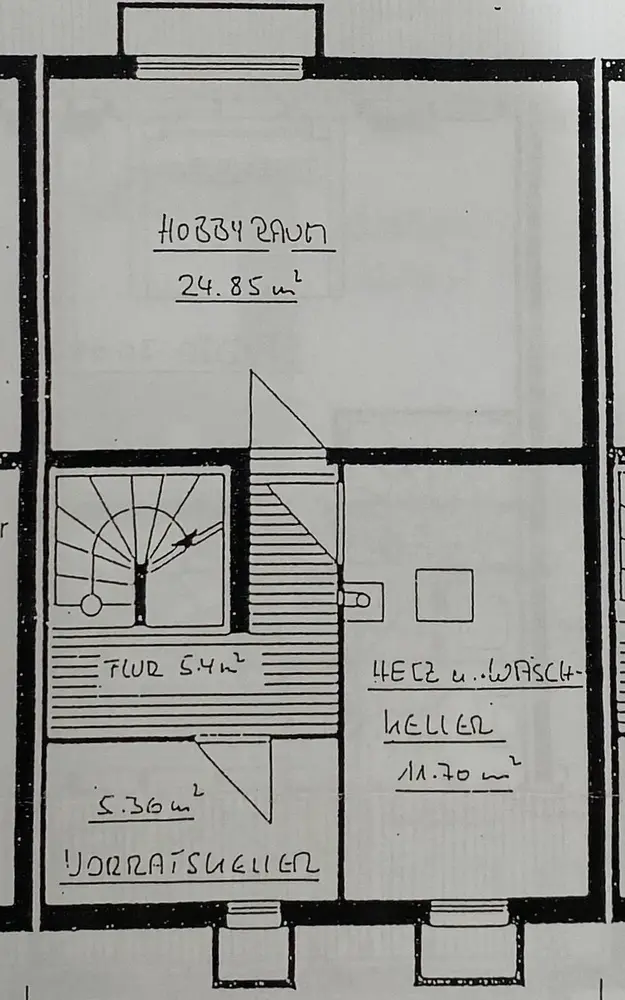 HOBBYRAUM
24.85 m²
r
FLUR 5.4 m²
HEIZ u. WASCH-
KELLER
11.70 m²
5.36 m²
VORRATSKELLER